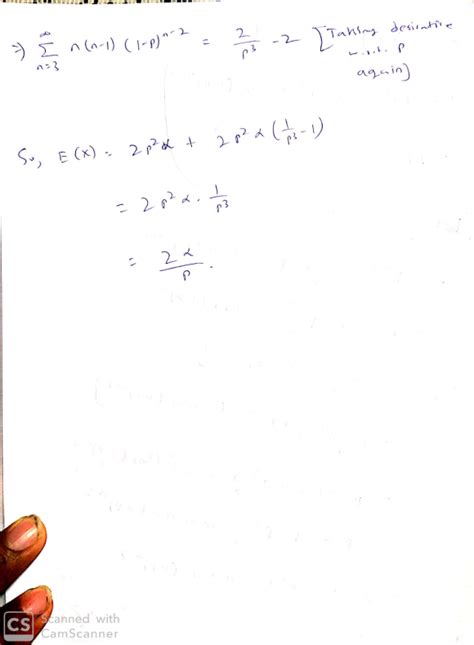 ⇒ ∞∑n=3 n(n-1) (1-p)^{n-2} = 2/p^3 - 2 [Taking derivative w.r.t. p again]
So, E(X) = 2p^2 α + 2p^2 α (1/p^3 - 1)
= 2p^2 α · 1/p^3
= 2α/p .
CS Scanned with
CamScanner